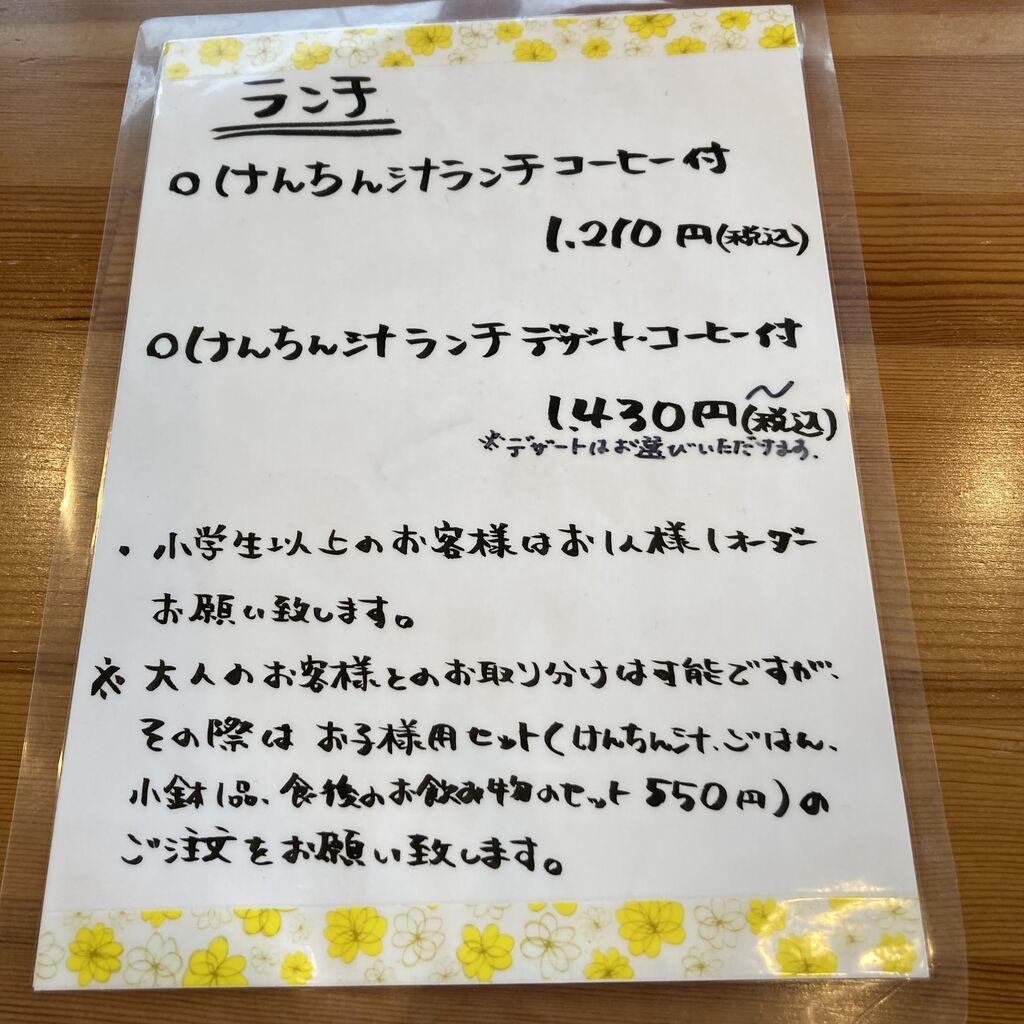 ランチ
○けんちん汁ランチ コーヒー付
1.210円(税込)
○けんちん汁ランチ デザート・コーヒー付
1.430円~(税込)
※デザートはお選びいただけます.
・小学生以上のお客様はお1人様1オーダー
お願い致します。
※大人のお客様とのお取り分けは可能ですが、
その際は お子様用セット(けんちん汁、ごはん、
小鉢1品、食後のお飲み物のセット 550円)の
ご注文をお願い致します。